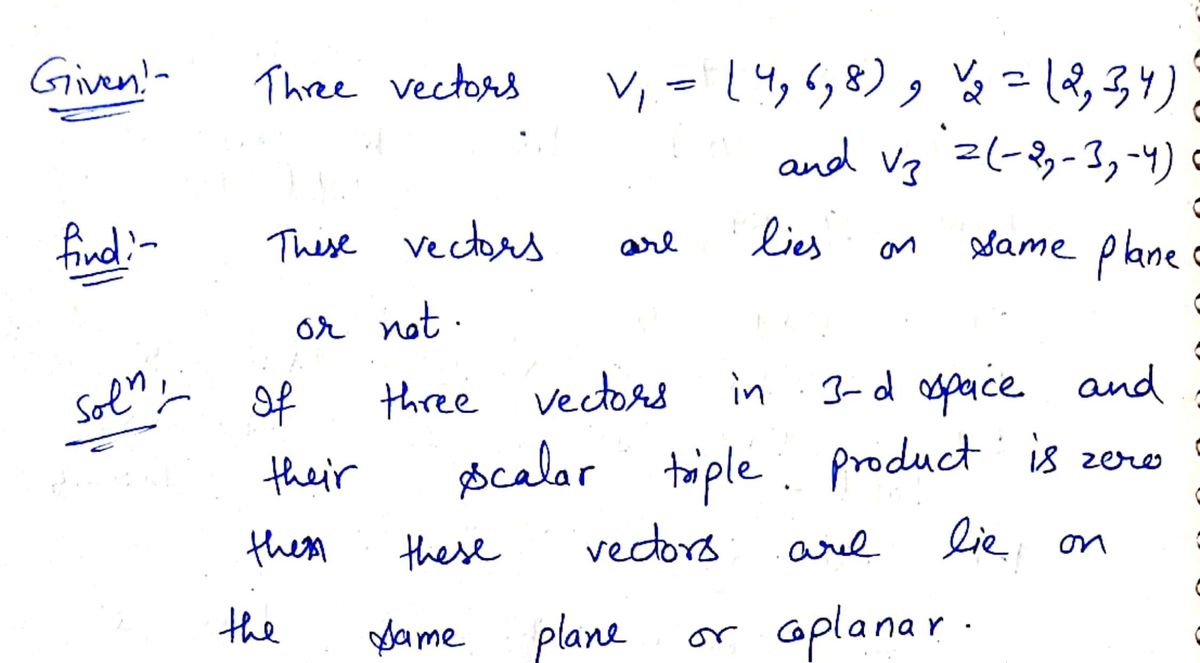 Given:- Three vectors V₁ = (4, 6, 8), V₂ = (2, 3, 4)
and V₃ = (-2, -3, -4)
find:- These vectors are lies on same plane
or not.
Solⁿ:- If three vectors in 3-d space and
their scalar triple product is zero
then these vectors are lie on
the same plane or coplanar.